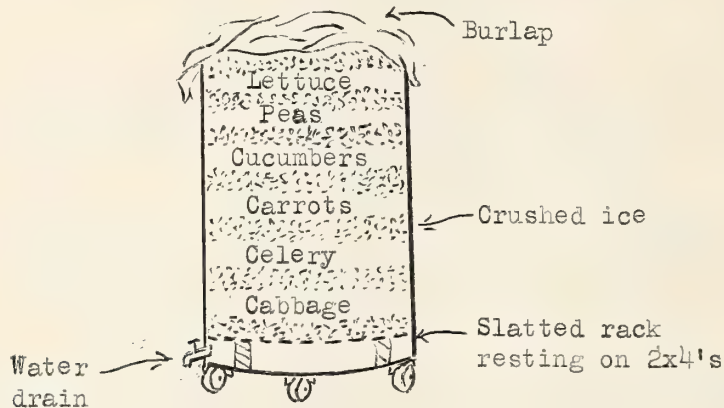 Burlap
Lettuce
Peas
Cucumbers
Carrots
Crushed ice
Celery
Cabbage
Slatted rack
resting on 2x4's
Water
drain